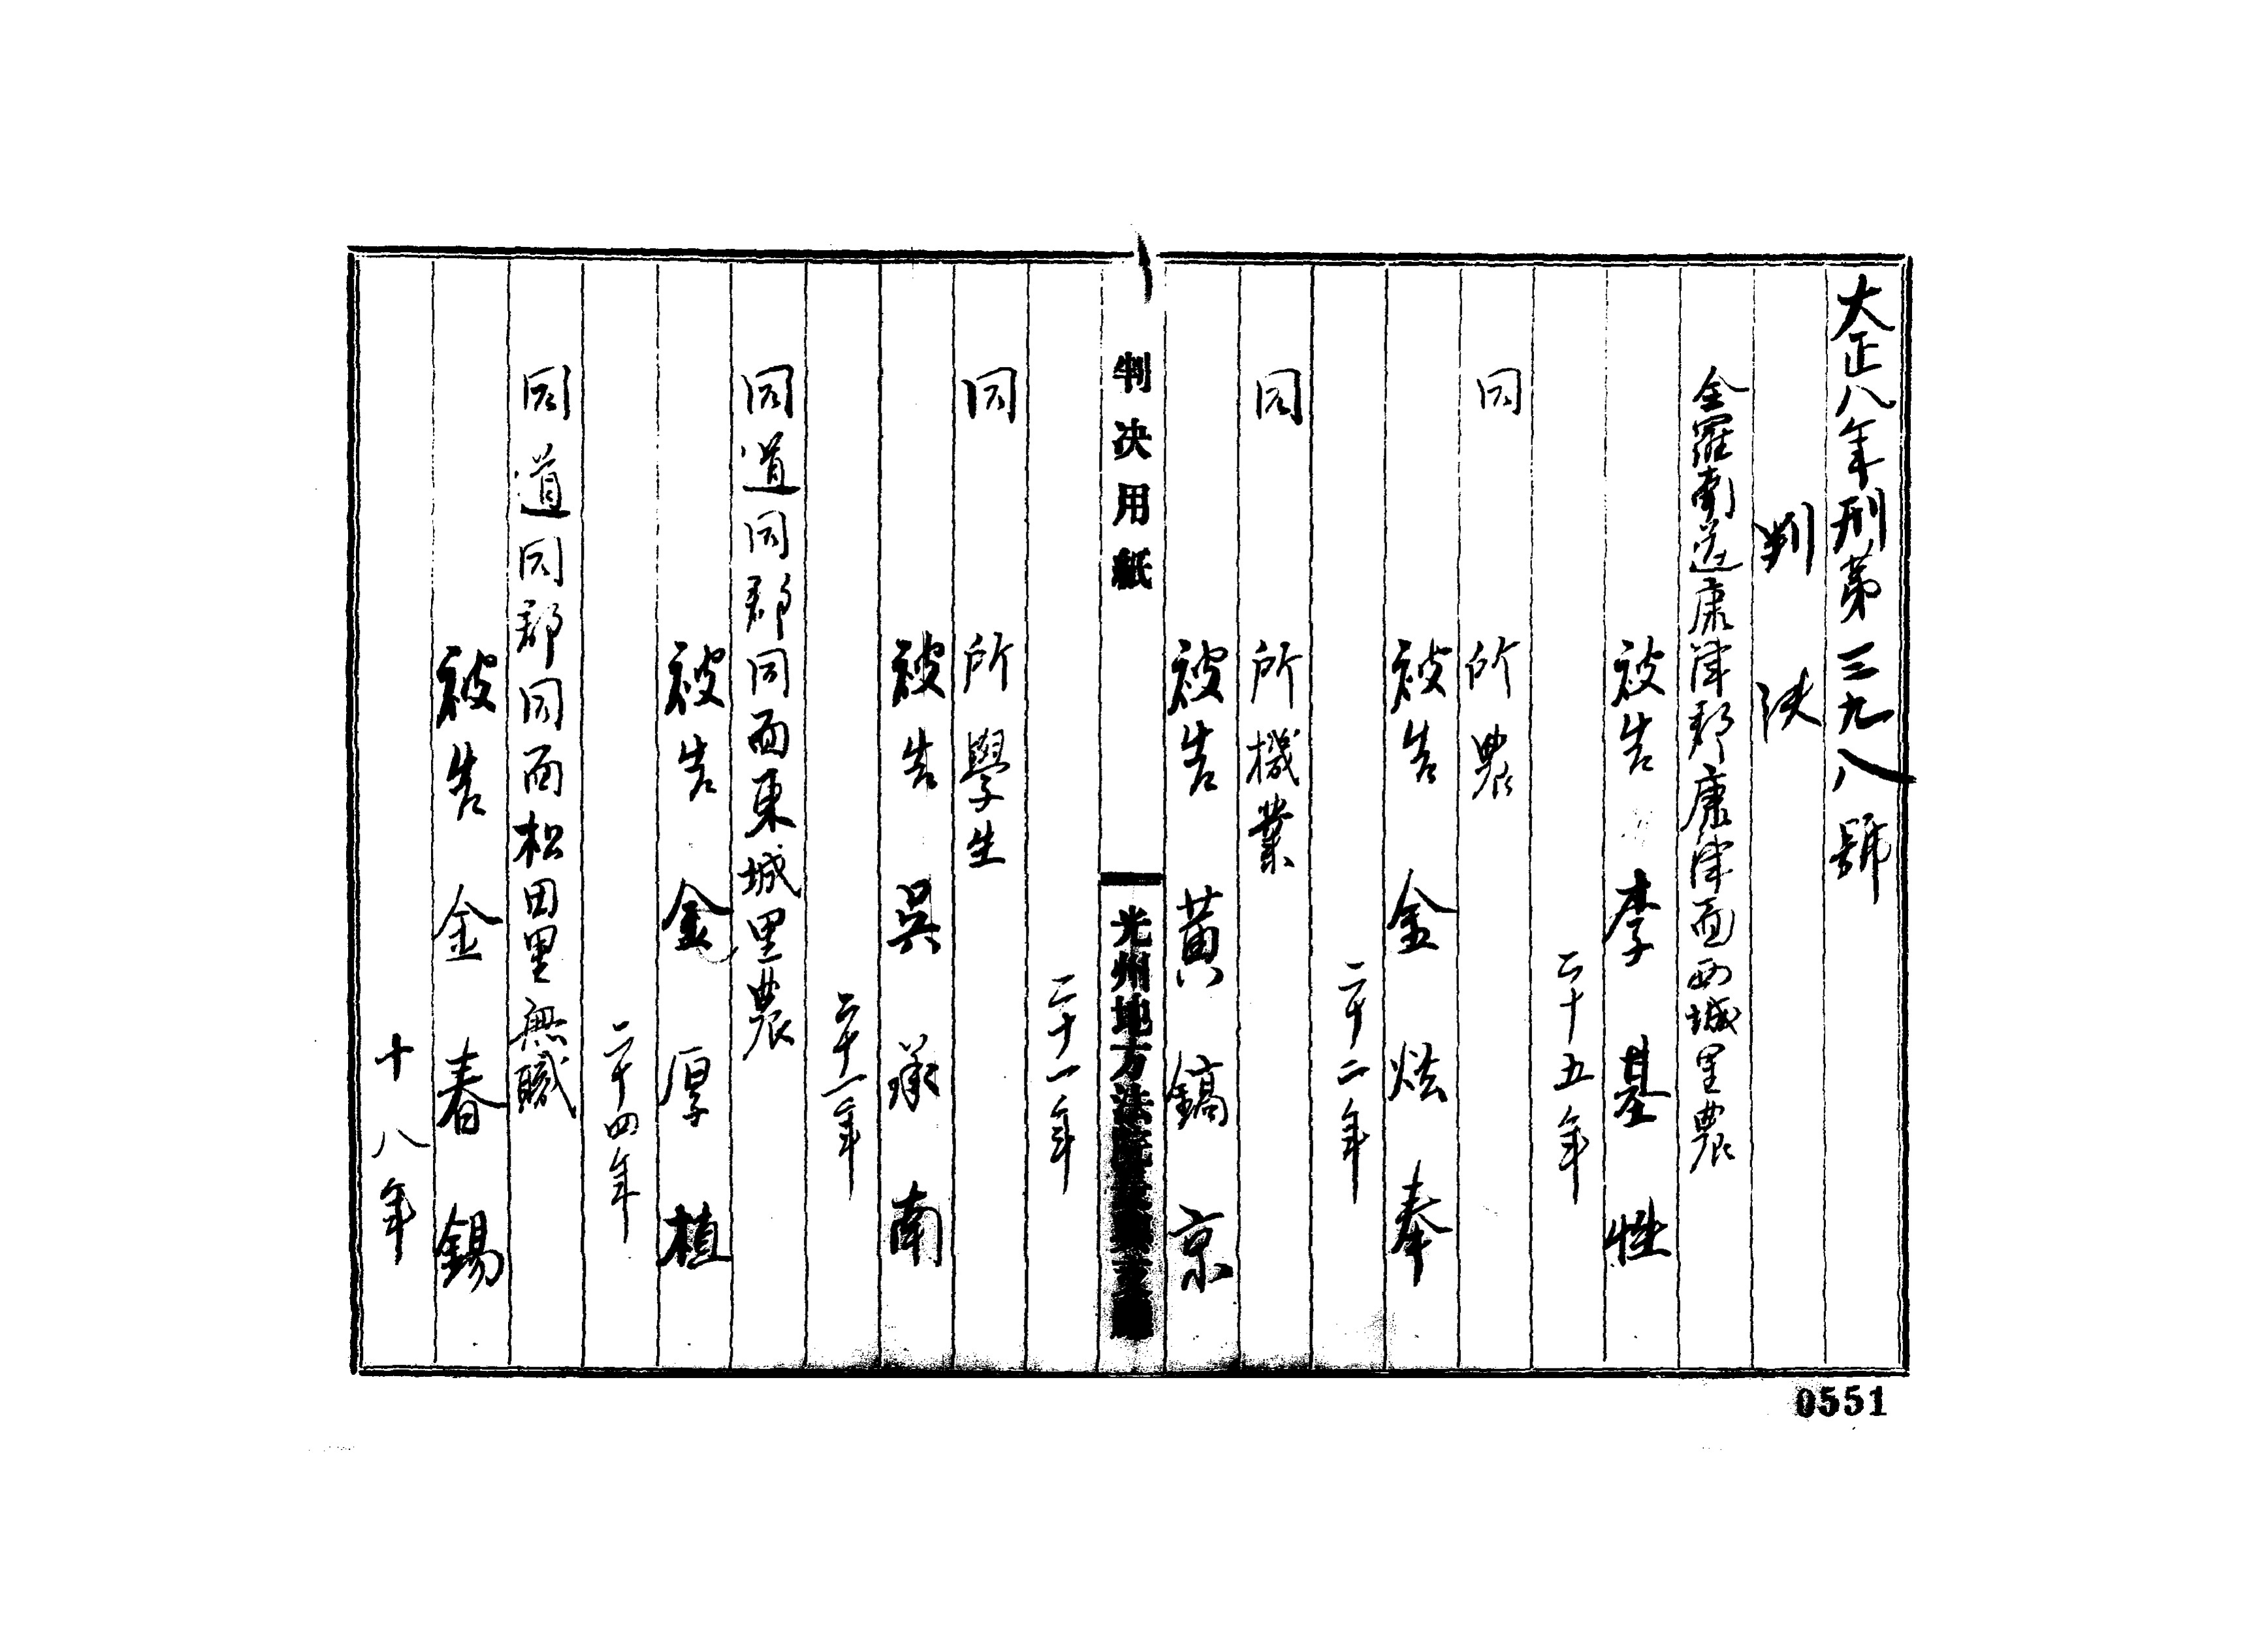 大正八年刑第三九八號
判決
全羅南道康津郡康津面西城里農
被告 李基性
二十五年
同 所 農
被告 金炫奉
二十二年
同 所 機業
被告 黃鎬京
判決用紙 光州地方法院
二十一年
同 所 學生
被告 吳承南
二十一年
同道同郡同面東城里農
被告 金厚植
二十四年
同道同郡同面松田里無職
被告 金春錫
十八年
0551